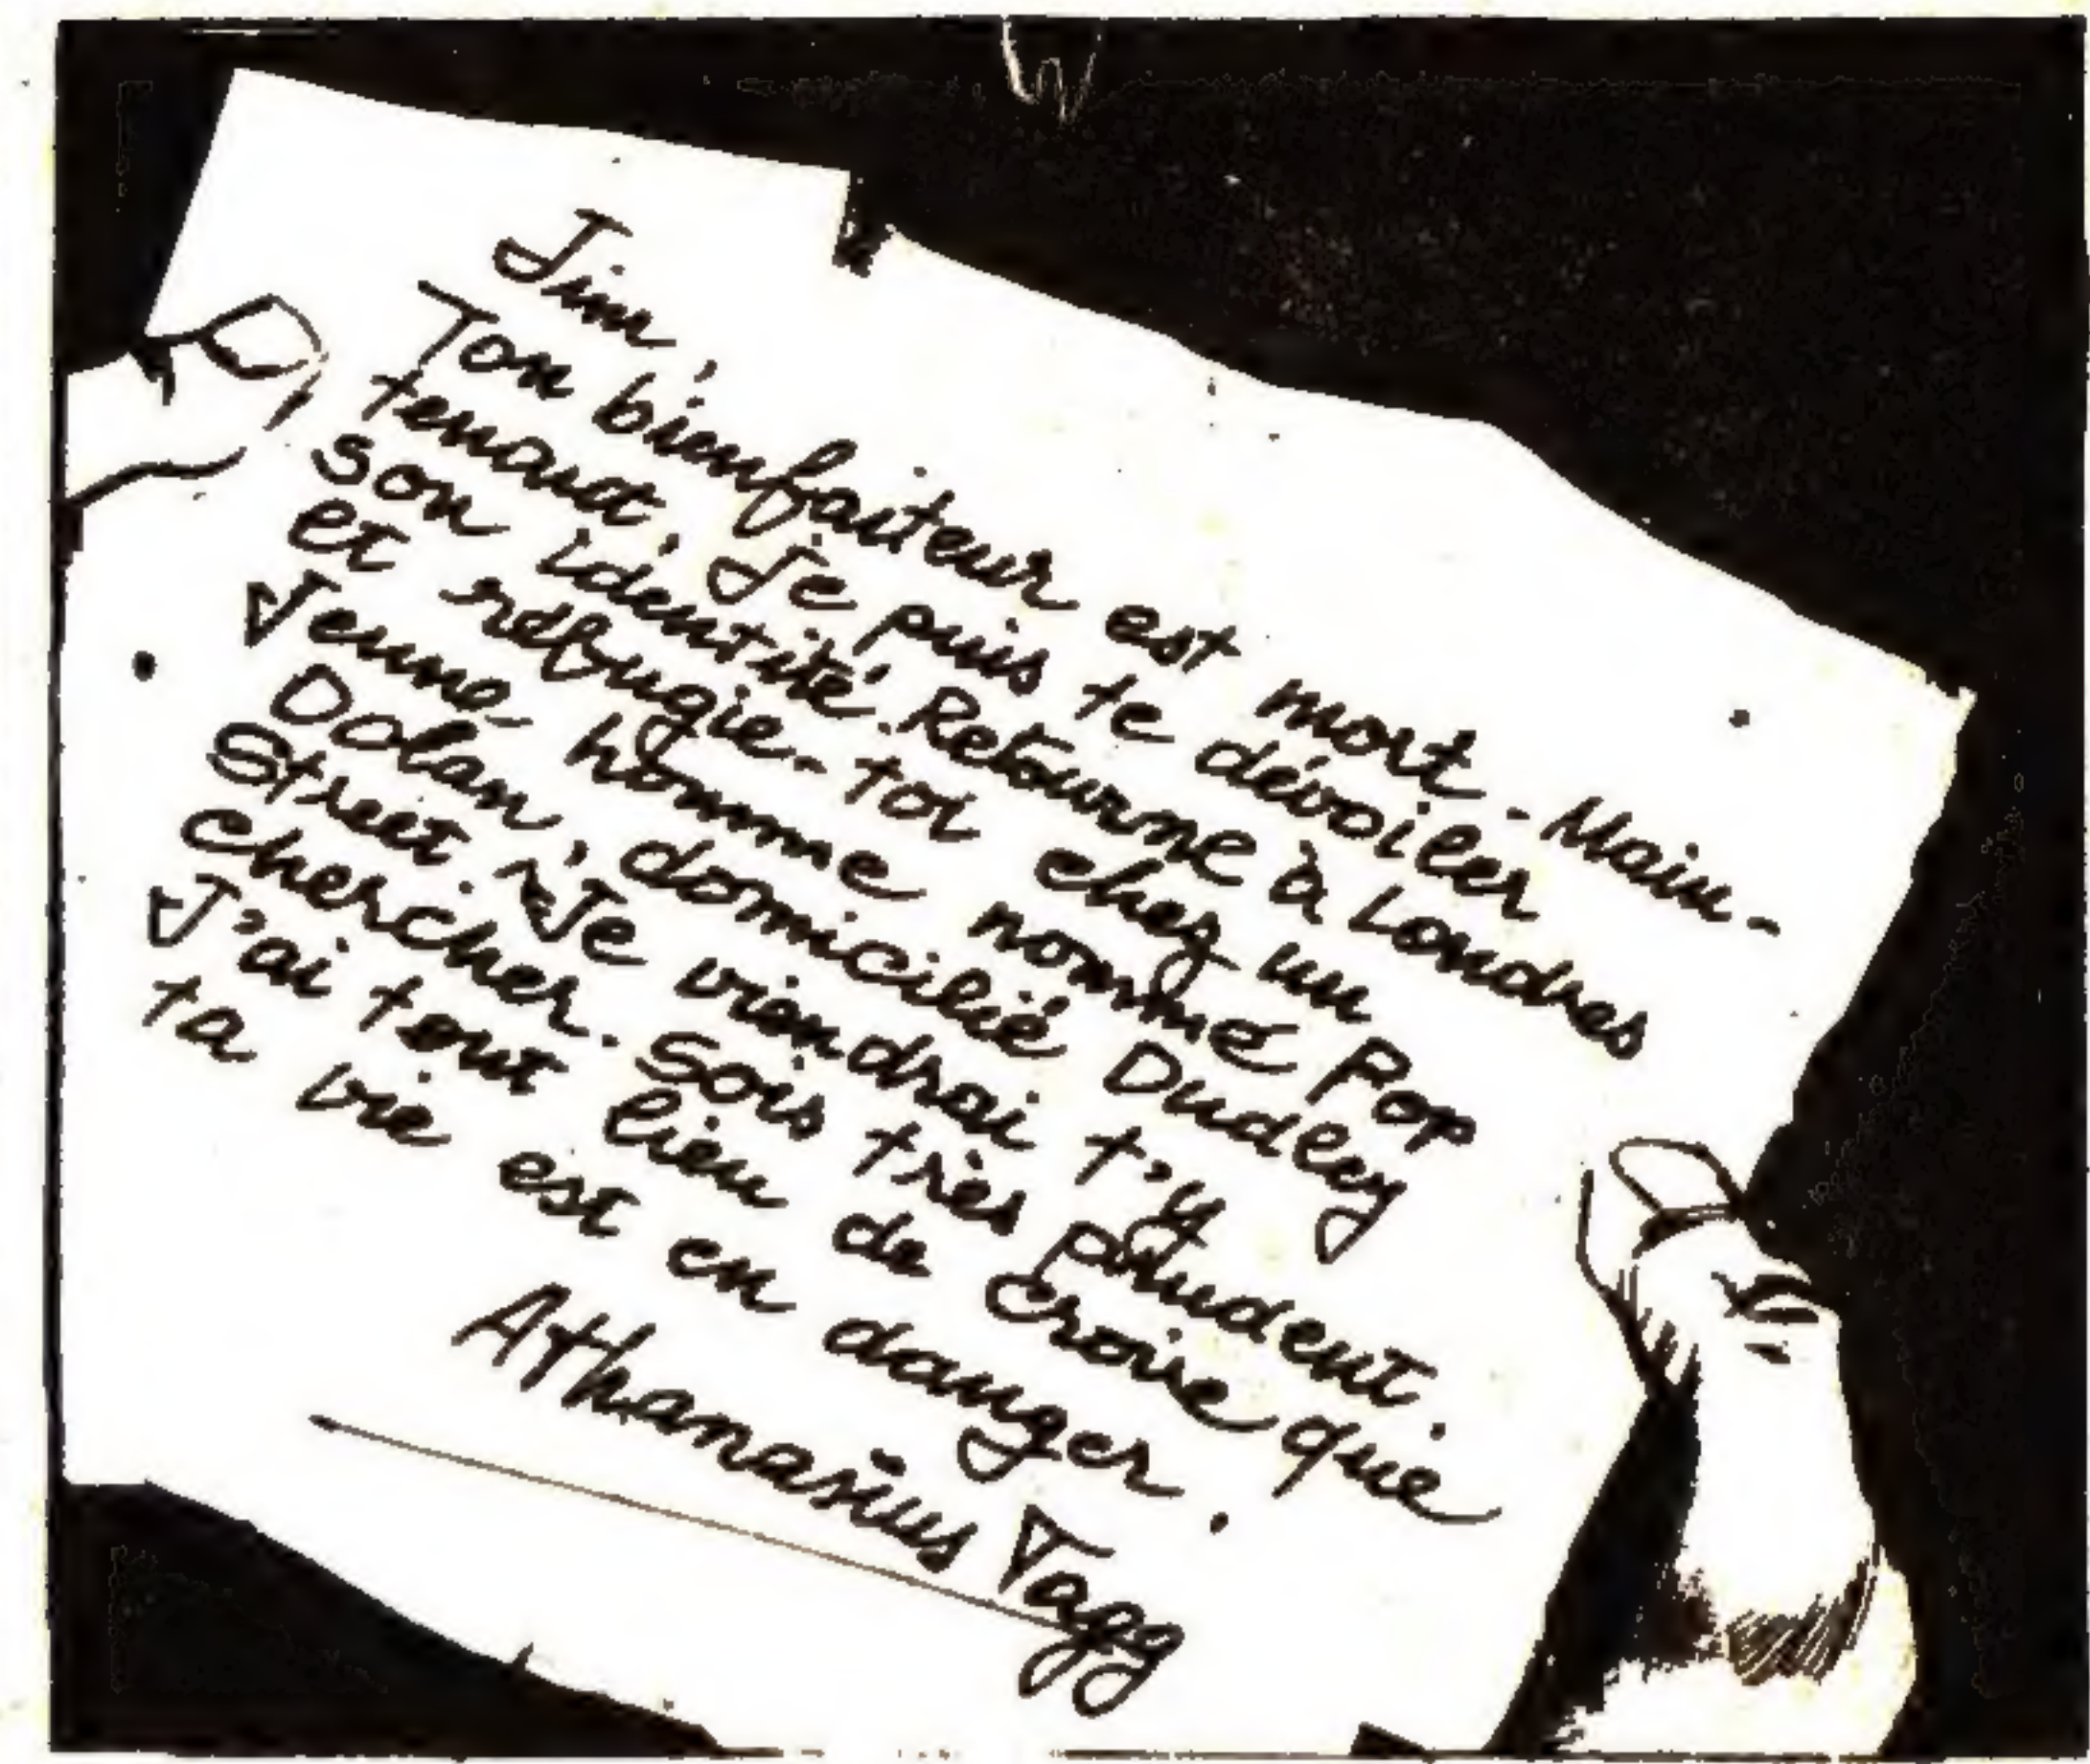 Jim,
Ton bienfaiteur est mort. Main-
tenant, je puis te dévoiler
son identité. Retourne à Londres
et réfugie-toi chez un
jeune homme nommé Pop
Dolan, domicilié Dudley
Street. Je viendrai t'y
chercher. Sois très prudent.
J'ai tout lieu de croire que
ta vie est en danger.
Athanasius Tagg